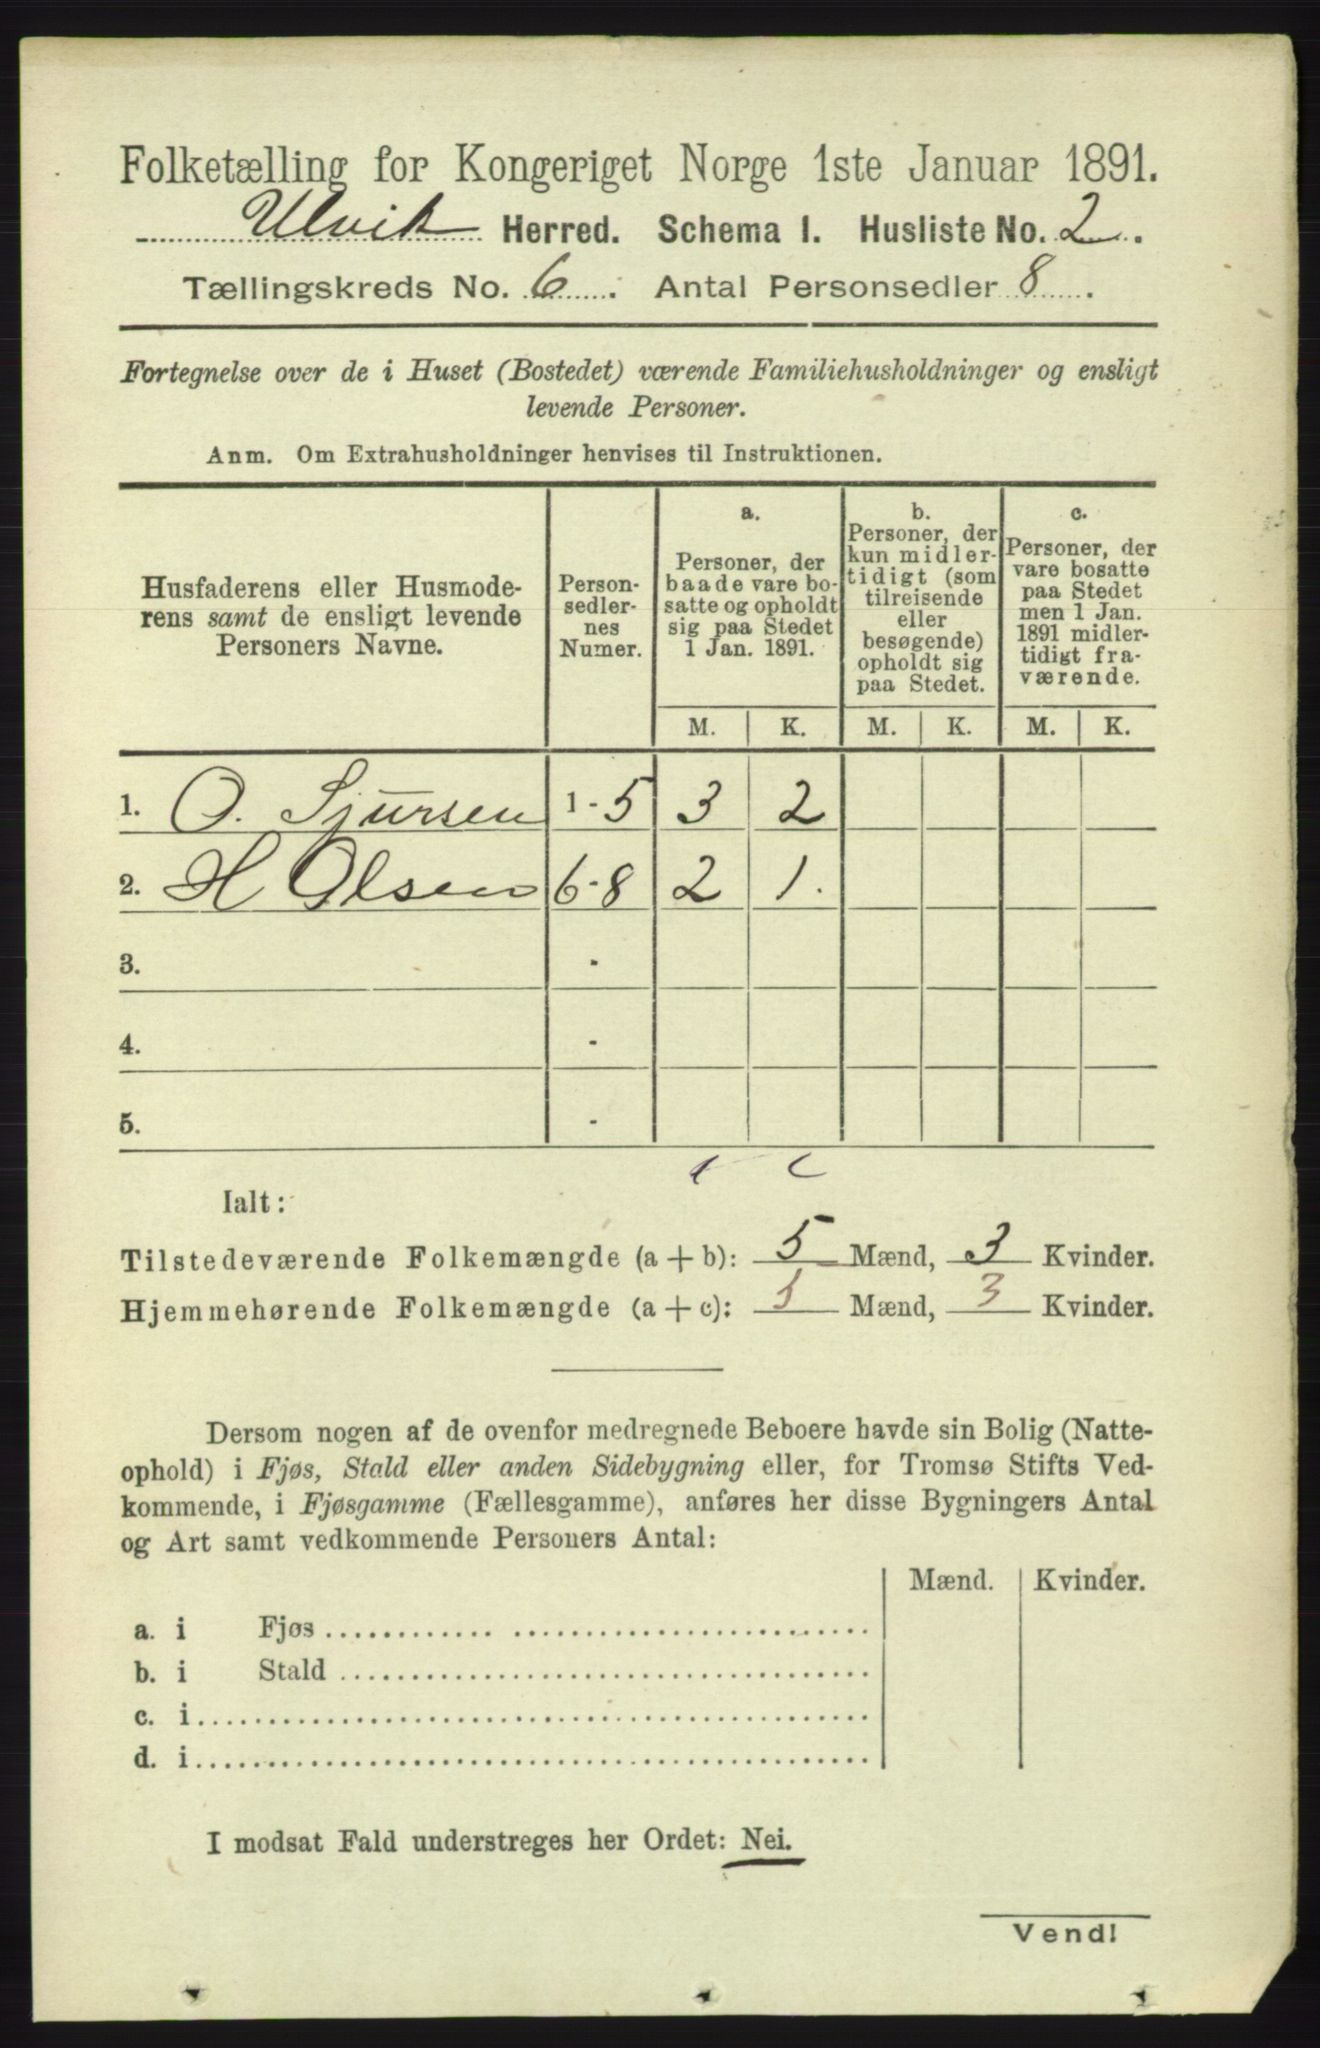 Folketælling for Kongeriget Norge 1ste Januar 1891.
Ulvik Herred. Schema I. Husliste No. 2.
Tællingskreds No. 6. Antal Personsedler 8.
Fortegnelse over de i Huset (Bostedet) værende Familiehusholdninger og ensligt
levende Personer.
Anm. Om Extrahusholdninger henvises til Instruktionen.
Husfaderens eller Husmode-
rens samt de ensligt levende
Personers Navne.
Person-
sedler-
nes
Numer.
a.
Personer, der
baade vare bo-
satte og opholdt
sig paa Stedet
1 Jan. 1891.
b.
Personer, der
kun midler-
tidigt (som
tilreisende
eller
besøgende)
opholdt sig
paa Stedet.
c.
Personer, der
vare bosatte
paa Stedet
men 1 Jan.
1891 midler-
tidigt fra-
værende.
M. K. M. K. M. K.
1. O. Sjursen 1-5 3 2
2. H Olsen 6-8 2 1.
3. -
4. -
5. -
Ialt:
Tilstedeværende Folkemængde (a + b): 5 Mænd, 3 Kvinder.
Hjemmehørende Folkemængde (a + c): 5 Mænd, 3 Kvinder.
Dersom nogen af de ovenfor medregnede Beboere havde sin Bolig (Natte-
ophold) i Fjøs, Stald eller anden Sidebygning eller, for Tromsø Stifts Ved-
kommende, i Fjøsgamme (Fællesgamme), anføres her disse Bygningers Antal
og Art samt vedkommende Personers Antal:
Mænd. Kvinder.
a. i Fjøs
b. i Stald
c. i
d. i
I modsat Fald understreges her Ordet: Nei.
Vend!